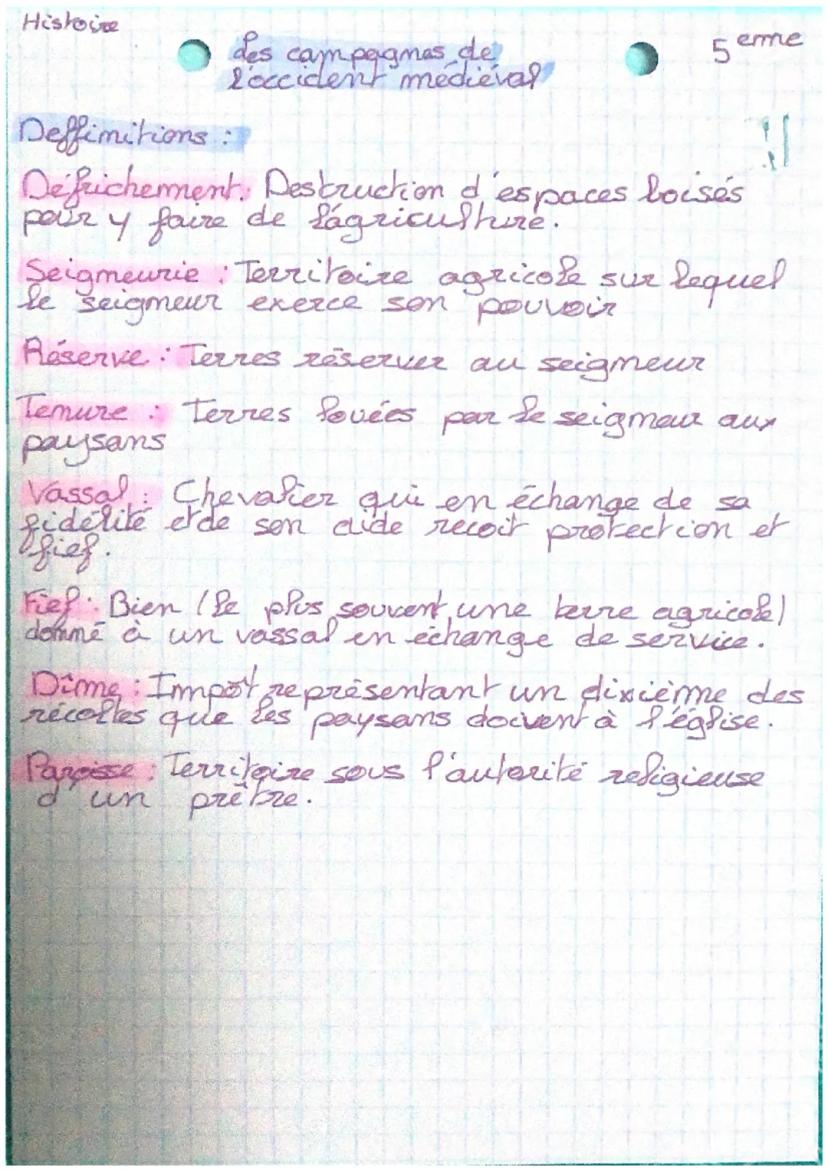 Histoire
5 eme
Les campagnes de
l'occident médiéval
Deffinitions :
Défrichement : Destruction d'espaces boisés
pour y faire de l'agriculture.
Seigneurie : Territoire agricole sur lequel
le seigneur exerce son pouvoir
Réserve : Terres réserver au seigneur
Tenure : Terres louées par le seigneur aux
paysans
Vassal : Chevalier qui en échange de sa
fidélité et de son aide reçoit protection et
fief.
Fief : Bien (le plus souvent une terre agricole)
donné à un vassal en échange de service.
Dîme : Impôt représentant un dixième des
récoltes que les paysans doivent à l'église.
Paroisse : Territoire sous l'autorité religieuse
d'un prêtre.